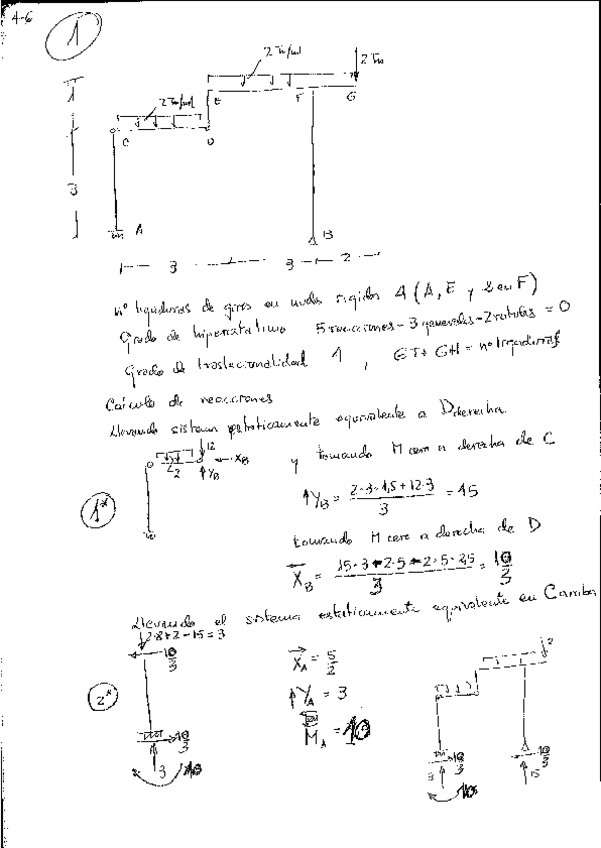 4-6
1
2 Tn/ml
2 Tn
E
F
G
2 Tn/ml
C
D
3
A
B
3 3 2
nº ligaduras de giros en nudos rigidos 4 (A, E y 2 en F)
Grado de hiperestatismo 5 reacciones - 3 generales - 2 rotulas = 0
Grado de traslacionalidad 1 , GT + GH = nº ligaduras
Calculo de reacciones
Llevando sistema estaticamente equivalente a D derecha
12
XB
YB
1*
y tomando M cero a derecha de C
YB = (2·3·1,5 + 12·3) / 3 = 15
tomando M cero a derecha de D
XB = 10/3
Llevando el sistema estaticamente equivalente en C arriba
2·8+2-15=3
10/3
2*
10/3
3
XA = 5/2
YA = 3
MA = 10
2
10/3
3
10/3
15